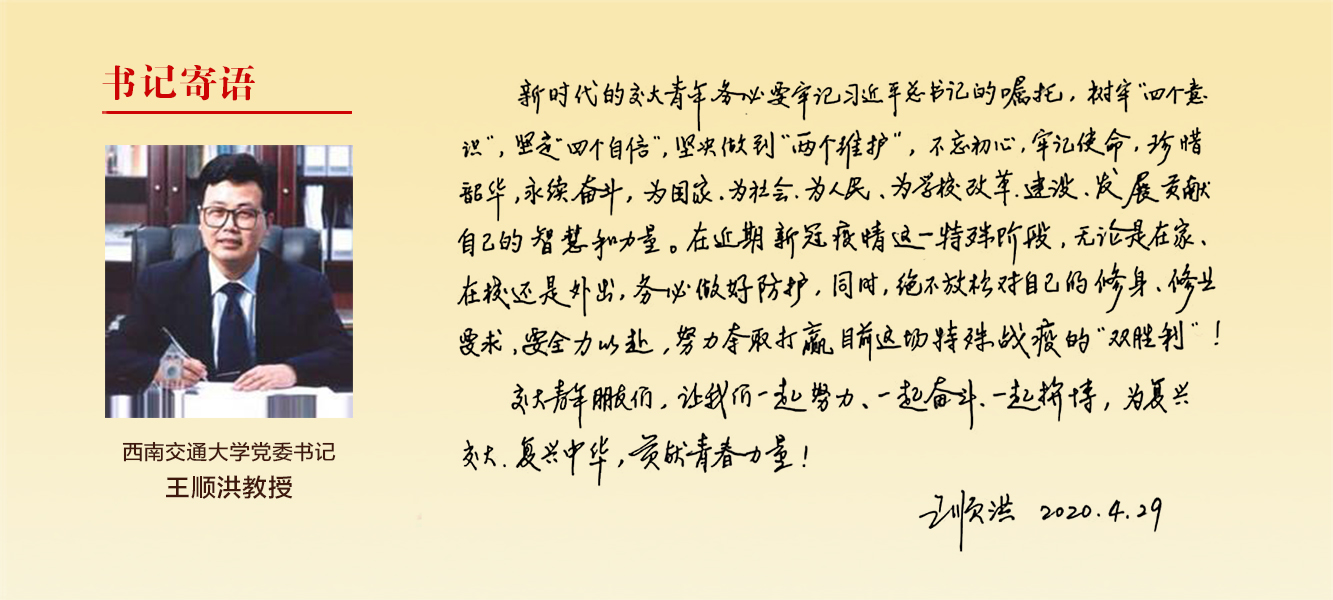 书记寄语
西南交通大学党委书记
王顺洪教授
新时代的交大青年务必要牢记习近平总书记的嘱托，树牢“四个意
识”，坚定“四个自信”，坚决做到“两个维护”，不忘初心，牢记使命，珍惜
韶华，永续奋斗，为国家、为社会、为人民、为学校改革、建设、发展贡献
自己的智慧和力量。在近期新冠疫情这一特殊阶段，无论是在家、
在校还是外出，务必做好防护，同时，绝不放松对自己的修身、修业
要求，要全力以赴，努力夺取打赢目前这场特殊战疫的“双胜利”！
交大青年朋友们，让我们一起努力、一起奋斗、一起拚博，为复兴
交大、复兴中华，贡献青春力量！
王顺洪 2020.4.29